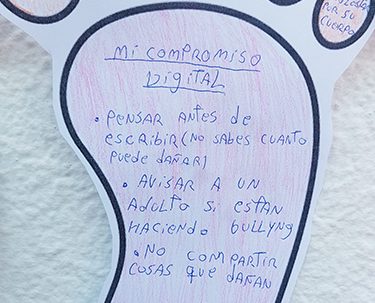 POR SU
CUERPO
Mi COMPROMiSO
DiGiTAL
• PENSAR ANTES DE
escribir (NO SABES CUANTO
PUEDE DAÑAR)
• AViSAR A UN
ADULTO Si ESTAN
HACiENDO BULLYNG
• NO COMPARTIR
COSAS QUE DAÑAN